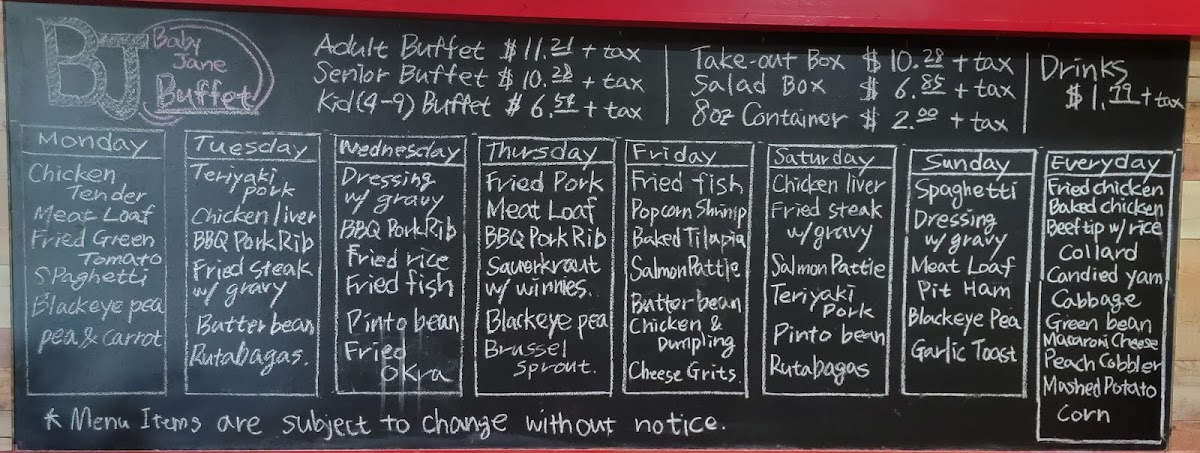 BJ
Baby
Jane
Buffet
Adult Buffet $ 11.21 + tax
Senior Buffet $ 10.28 + tax
Kid(4-9) Buffet $ 6.54 + tax
Take-out Box $ 10.28 + tax
Salad Box $ 6.85 + tax
8oz Container $ 2.00 + tax
Drinks
$ 1.79 + tax
Monday
Chicken
Tender
Meat Loaf
Fried Green
Tomato
Spaghetti
Blackeye pea
pea & carrot
Tuesday
Teriyaki
pork
Chicken liver
BBQ Pork Rib
Fried steak
w/ gravy
Butter bean
Rutabagas.
Wednesday
Dressing
w/ gravy
BBQ Pork Rib
Fried rice
Fried fish
Pinto bean
Fried
Okra
Thursday
Fried Pork
Meat Loaf
BBQ Pork Rib
Sauerkraut
w/ winnies.
Blackeye pea
Brussel
Sprout.
Friday
Fried fish
Popcorn Shrimp
Baked Tilapia
Salmon Pattie
Butter bean
Chicken &
Dumpling
Cheese Grits.
Saturday
Chicken liver
Fried steak
w/ gravy
Salmon Pattie
Teriyaki
Pork
Pinto bean
Rutabagas
Sunday
Spaghetti
Dressing
w/ gravy
Meat Loaf
Pit Ham
Blackeye Pea
Garlic Toast
Everyday
Fried chicken
Baked chicken
Beef tip w/ rice
Collard
Candied yam
Cabbage
Green bean
Macaroni Cheese
Peach Cobbler
Mashed Potato
Corn
* Menu Items are subject to change without notice.